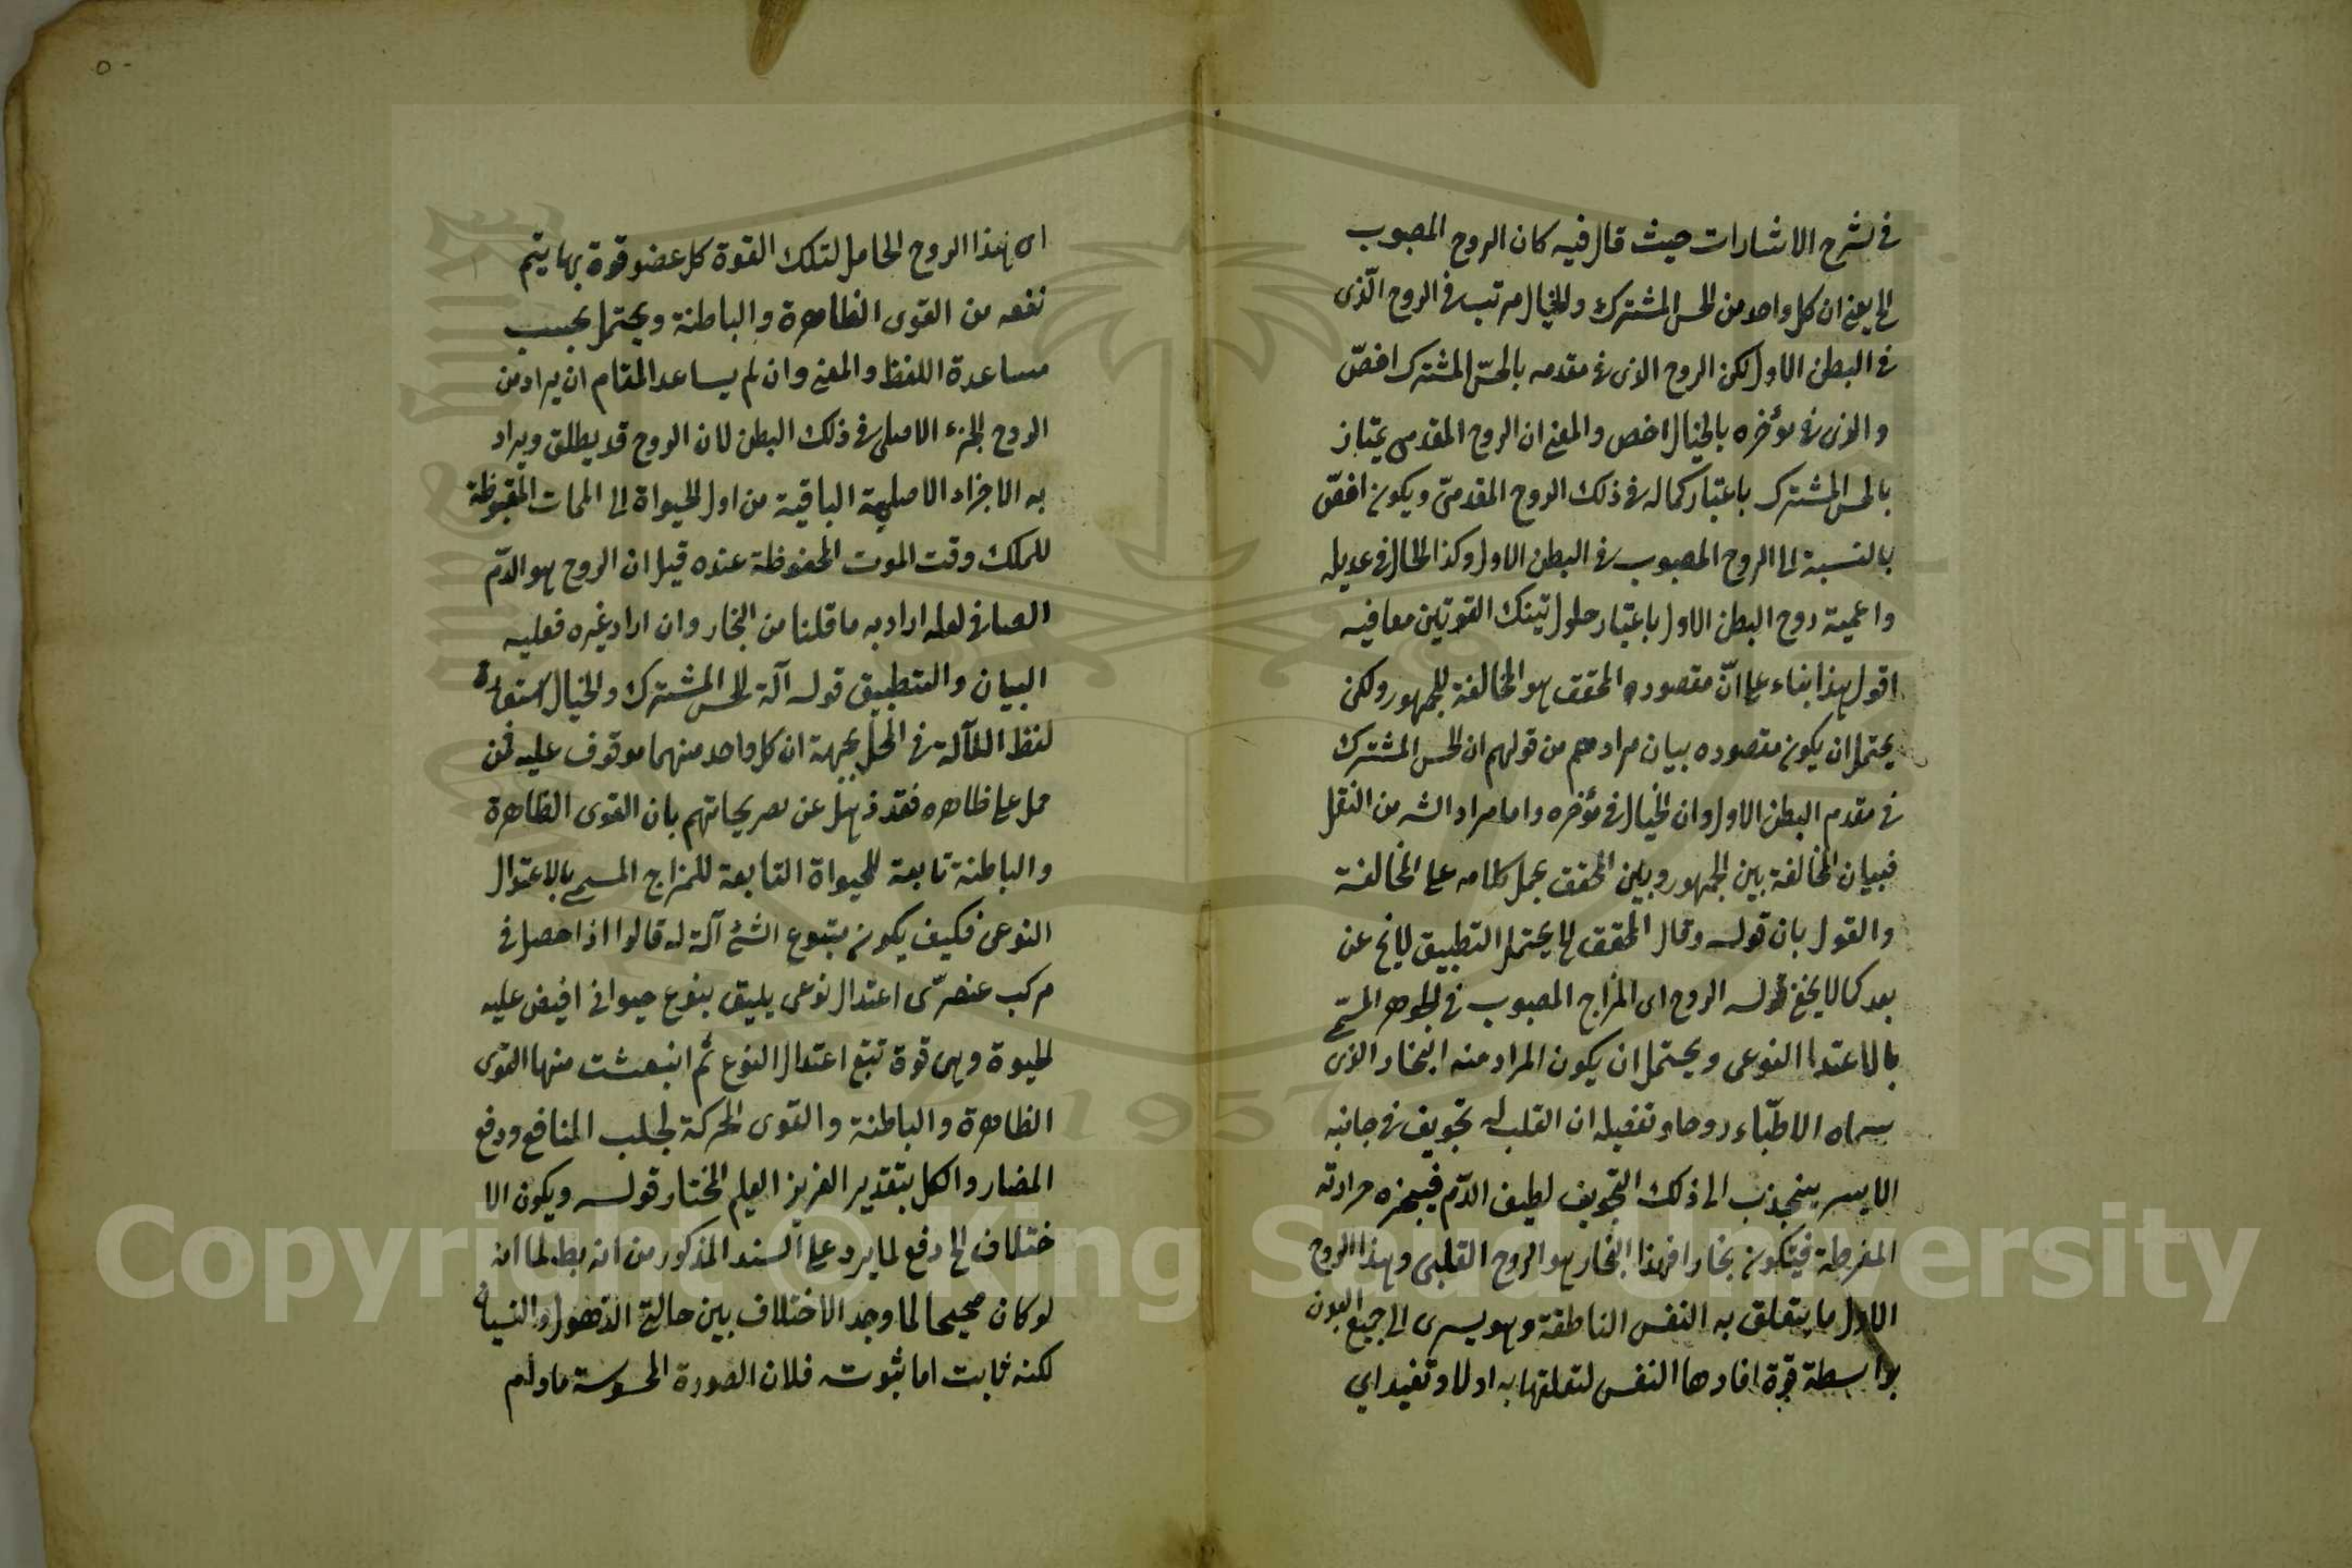 في شرح الاشارات حيث قال فيه كان الروح المصبوب
الخ يعنى ان كل واحد من الحس المشترك والخيال مرتب في الروح الّذى
في البطن الاول لكن الروح الذى في مقدمه بالحسّ المشترك اخصّ
والذى في مؤخره بالخيال اخص والمعنى ان الروح المقدمى يمتاز
بالحس المشترك باعتبار كماله في ذلك الروح المقدمىّ ويكون اخصّ
بالنسبة الى الروح المصبوب في البطن الاول وكذا الحال في عديله
واعمية روح البطن الاول باعتبار حلول تينك القوتين معا فيه
اقول هذا بناء على انّ مقصوده المحقق هو المخالفة للجمهور ولكن
يحتمل ان يكون مقصوده بيان مرادهم من قولهم ان الحس المشترك
في مقدم البطن الاول وان الخيال في مؤخره واما مراد الشه من النقل
فبيان المخالفة بين الجمهور وبين المحقق بحمل كلامه على المخالفة
والقول بان قوله وقال المحقق الخ يحتمل التطبيق لايخ عن
بعد كما لا يخفى قوله الروح اى المزاج المصبوب في الجوهر المسمّى
بالاعتدا النوعى ويحتمل ان يكون المراد منه البخار الذى
سماه الاطبّاء روحا وتفصيله ان القلب له تجويف في جانبه
الايسر ينجذب الى ذلك التجويف لطيف الدّم فيبخره حرارته
المفرطة فيتكون بخارا فهذا البخار هو الروح القلبى وهذا الروح
الاول ما يتعلق به النفس الناطقة وهو يسرى الى جميع البدن
بواسطة قوة افادها النفس لتعلقها به اولا وتفيد اي
٥٠
اى بهذا الروح الحامل لتلك القوة كل عضو قوة بها يتم
نفعه من القوى الظاهرة والباطنة ويحتمل بحسب
مساعدة اللفظ والمعنى وان لم يساعد المقام ان يراد من
الروح الجزء الاصلى في ذلك البطن لان الروح قد يطلق ويراد
به الاجزاء الاصلية الباقية من اول الحيواة الى الممات المقبوظة
للملك وقت الموت المحفوظة عنده قيل ان الروح هو الدّم
الصافى لعله اراد به ما قلنا من البخار وان اراد غيره فعليه
البيان والتطبيق قوله آلة للحس المشترك والخيال استعارة
لفظ الآلة في المحل بجهة ان كل واحد منهما موقوف عليه فمن
حمل على ظاهره فقد ذهل عن تصريحاتهم بان القوى الظاهرة
والباطنة تابعة للحيواة التابعة للمزاج المسمى بالاعتدال
النوعى فكيف يكون متبوع الشئ آلة له قالوا اذا حصل في
مركب عنصرّى اعتدال نوعى يليق بنوع حيوانى افيض عليه
لحيوة وهى قوة تتبع اعتدال النوع ثم انبعثت منها القوى
الظاهرة والباطنة والقوى المحركة لجلب المنافع ودفع
المضار والكل بتقدير العزيز العليم المختار قوله ويكون الا
ختلاف الخ دفع لما يرد على السند المذكور من انه بط لما انه
لو كان صحيحا لما وجد الاختلاف بين حالتى الذهول والنسيان
لكنه ثابت اما ثبوت فلان الصورة المحسوسة مادام
Copyright © King Saud University
1957